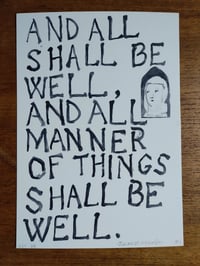 AND ALL
SHALL BE
WELL,
AND ALL
MANNER
OF THINGS
SHALL BE
WELL.